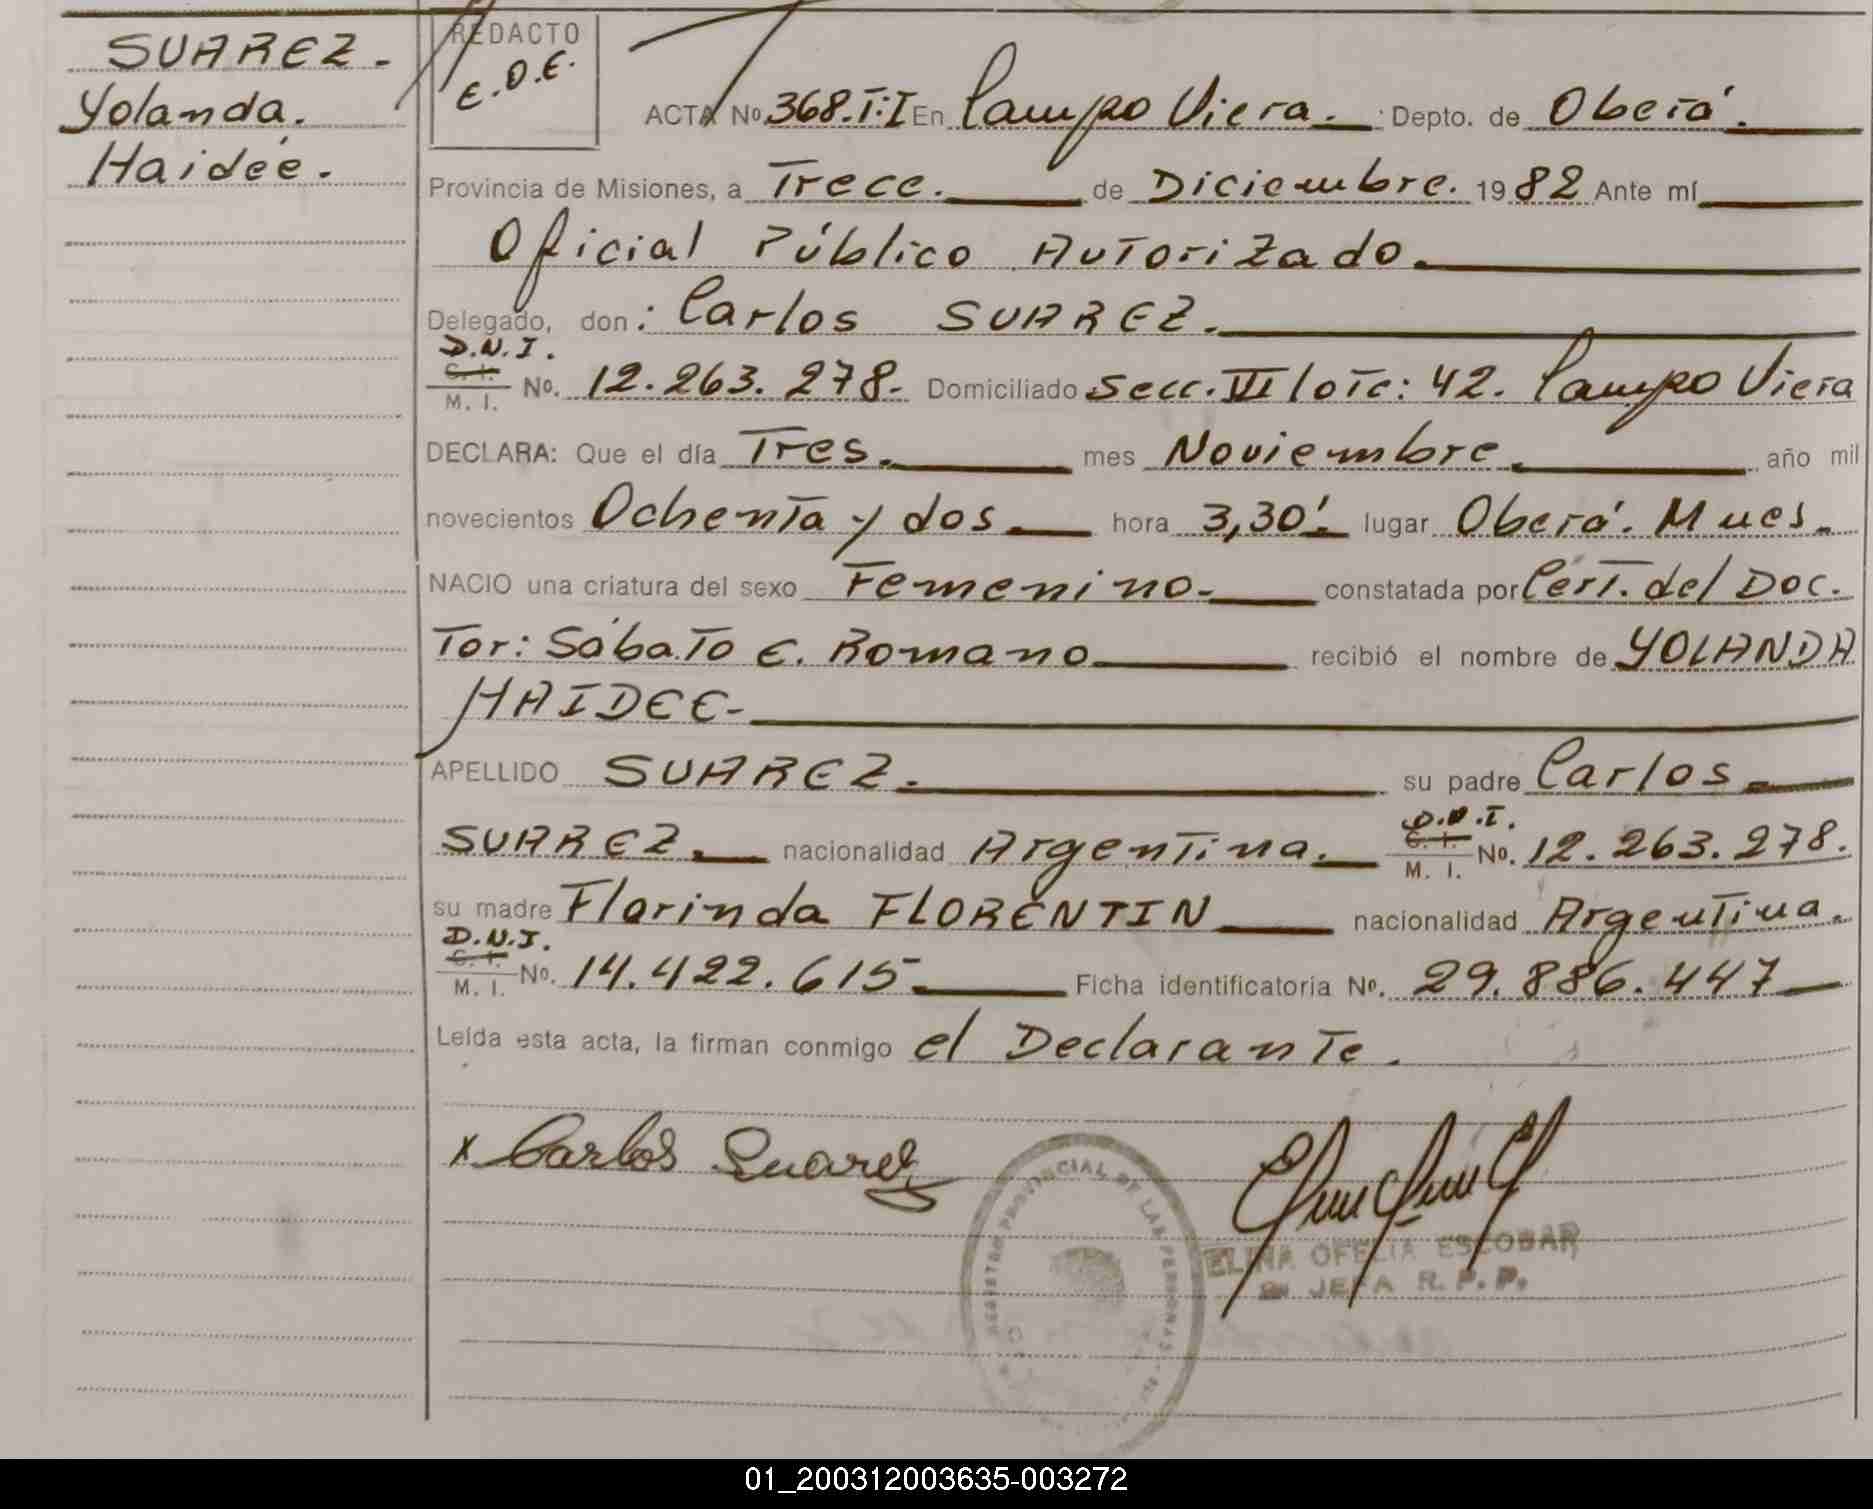 SUAREZ.
Yolanda.
Haideé.
REDACTO
E.O.E.
ACTA No. 368.T:I En Campo Viera. Depto. de Oberá.
Provincia de Misiones, a Trece. de Diciembre. 1982 Ante mí
Oficial Público Autorizado.
Delegado, don: Carlos SUAREZ.
D.N.I.
C. I.
M. I. No. 12.263.278. Domiciliado Secc. VI lote: 42. Campo Viera
DECLARA: Que el día Tres. mes Noviembre. año mil
novecientos Ochenta y dos. hora 3,30'. lugar Oberá. Mnes.
NACIO una criatura del sexo Femenino. constatada por Cert. del Doc.
Tor: Sábato E. Romano recibió el nombre de YOLANDA
HAIDEE-
APELLIDO SUAREZ. su padre Carlos
SUAREZ. nacionalidad Argentina. D.N.I. C. I. M. I. No. 12.263.278.
su madre Florinda FLORENTIN nacionalidad Argentina.
D.N.I.
C. I.
M. I. No. 14.422.615 Ficha identificatoria No. 29.886.447
Leída esta acta, la firman conmigo el Declarante.
x Carlos Suarez
REGISTRO PROVINCIAL DE LAS PERSONAS
ELINA OFELIA ESCOBAR
JEFA R.P.P.
01_200312003635-003272